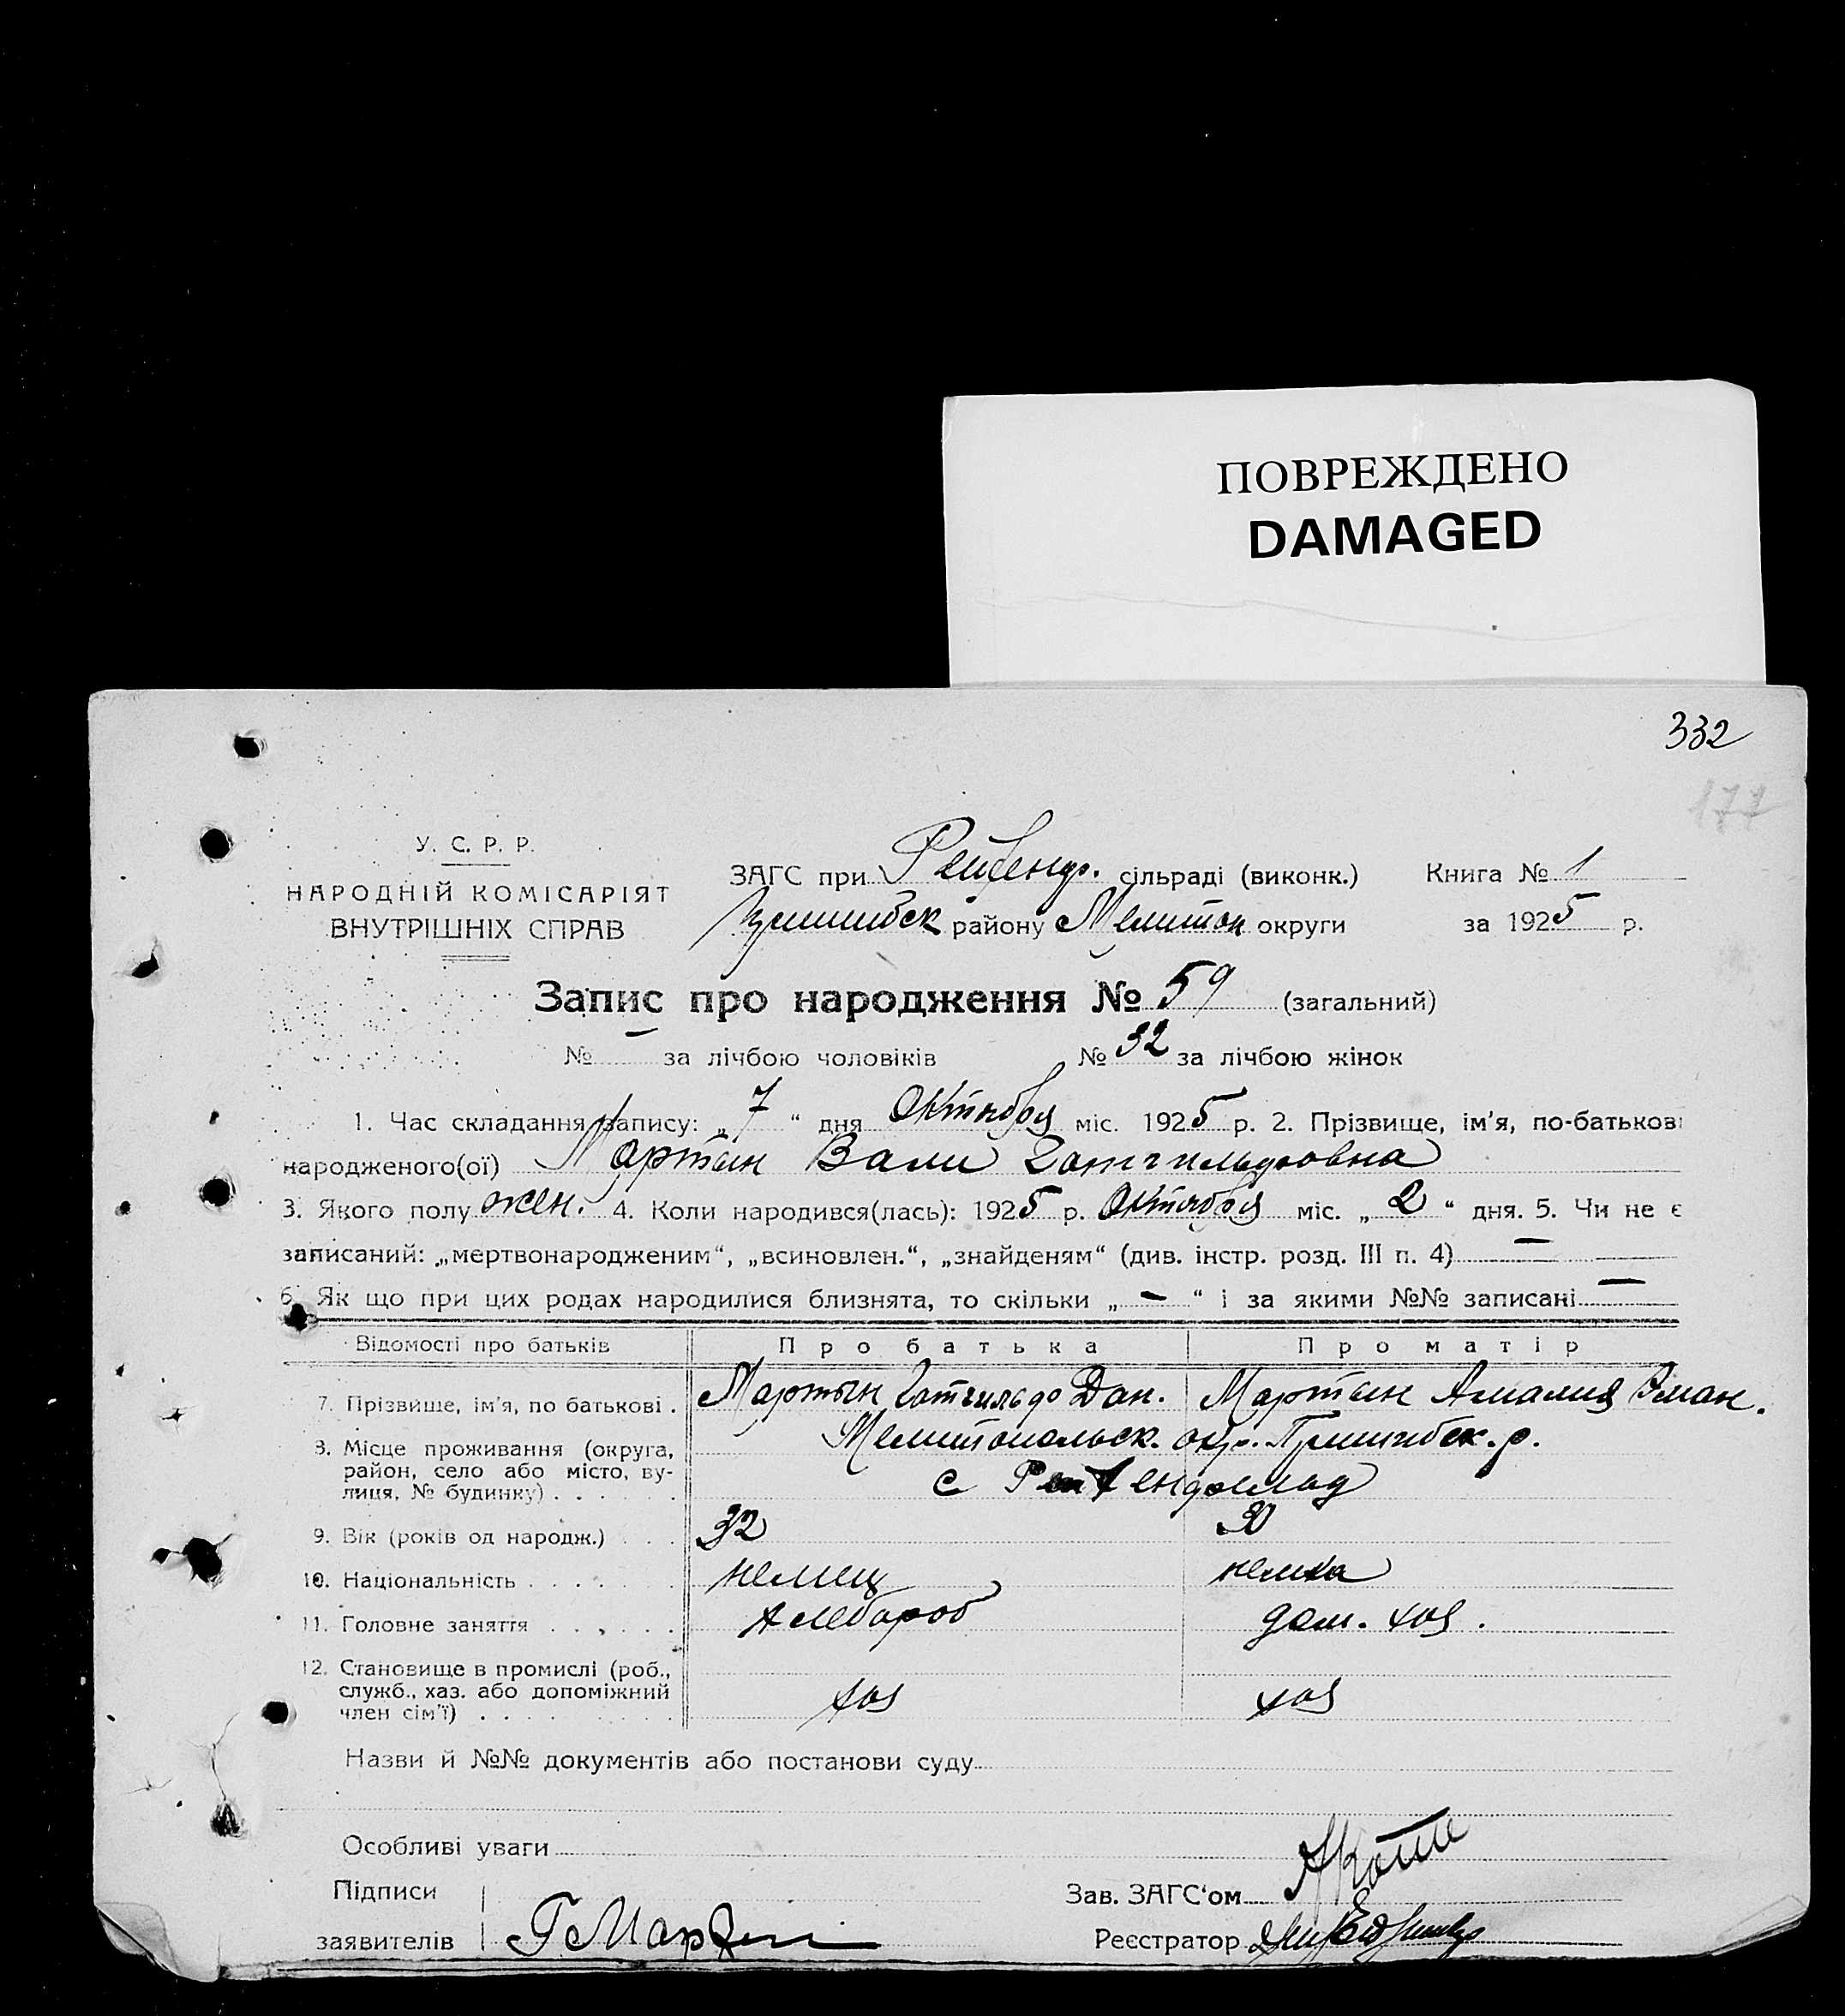 ПОВРЕЖДЕНО
DAMAGED
332
177
У. С. Р. Р.
НАРОДНІЙ КОМІСАРІЯТ
ВНУТРІШНІХ СПРАВ
ЗАГС при Рейхенф. сільраді (виконк.) Книга № 1
Пришибск району Мелитоп округи за 1925 р.
Запис про народження № 59 (загальний)
№ – за лічбою чоловіків № 32 за лічбою жінок
1. Час складання запису: „ 7 “ дня Октября міс. 1925 р. 2. Прізвище, ім'я, по-батькові
народженого(ої) Мартын Вали Готгильфовна
3. Якого полу жен. 4. Коли народився(лась): 1925 р. Октября міс. „ 2 “ дня. 5. Чи не є
записаний: „мертвонародженим“, „всиновлен.“, „знайденям“ (див. інстр. розд. III п. 4) –
6. Як що при цих родах народилися близнята, то скільки „ – “ і за якими №№ записані –
Відомості про батьків Про батька Про матір
7. Прізвище, ім'я, по батькові . Мартын Дан. Мартын Амалия
8. Місце проживання (округа, район, село або місто, вулиця, № будинку) . . . . . Мелитопольск. окр. Пришибск. р.
с
9. Вік (років од народж.) . . . 32 30
10. Національність . . . . . . . немец немка
11. Головне заняття . . . . . . хлебороб дом. хоз.
12. Становище в промислі (роб.,
служб., хаз. або допоміжний
член сім'ї) . . . . . . . . . хоз хоз
Назви й №№ документів або постанови суду
Особливі уваги
Підписи
заявителів Г Мартин
Зав. ЗАГС'ом
Реєстратор